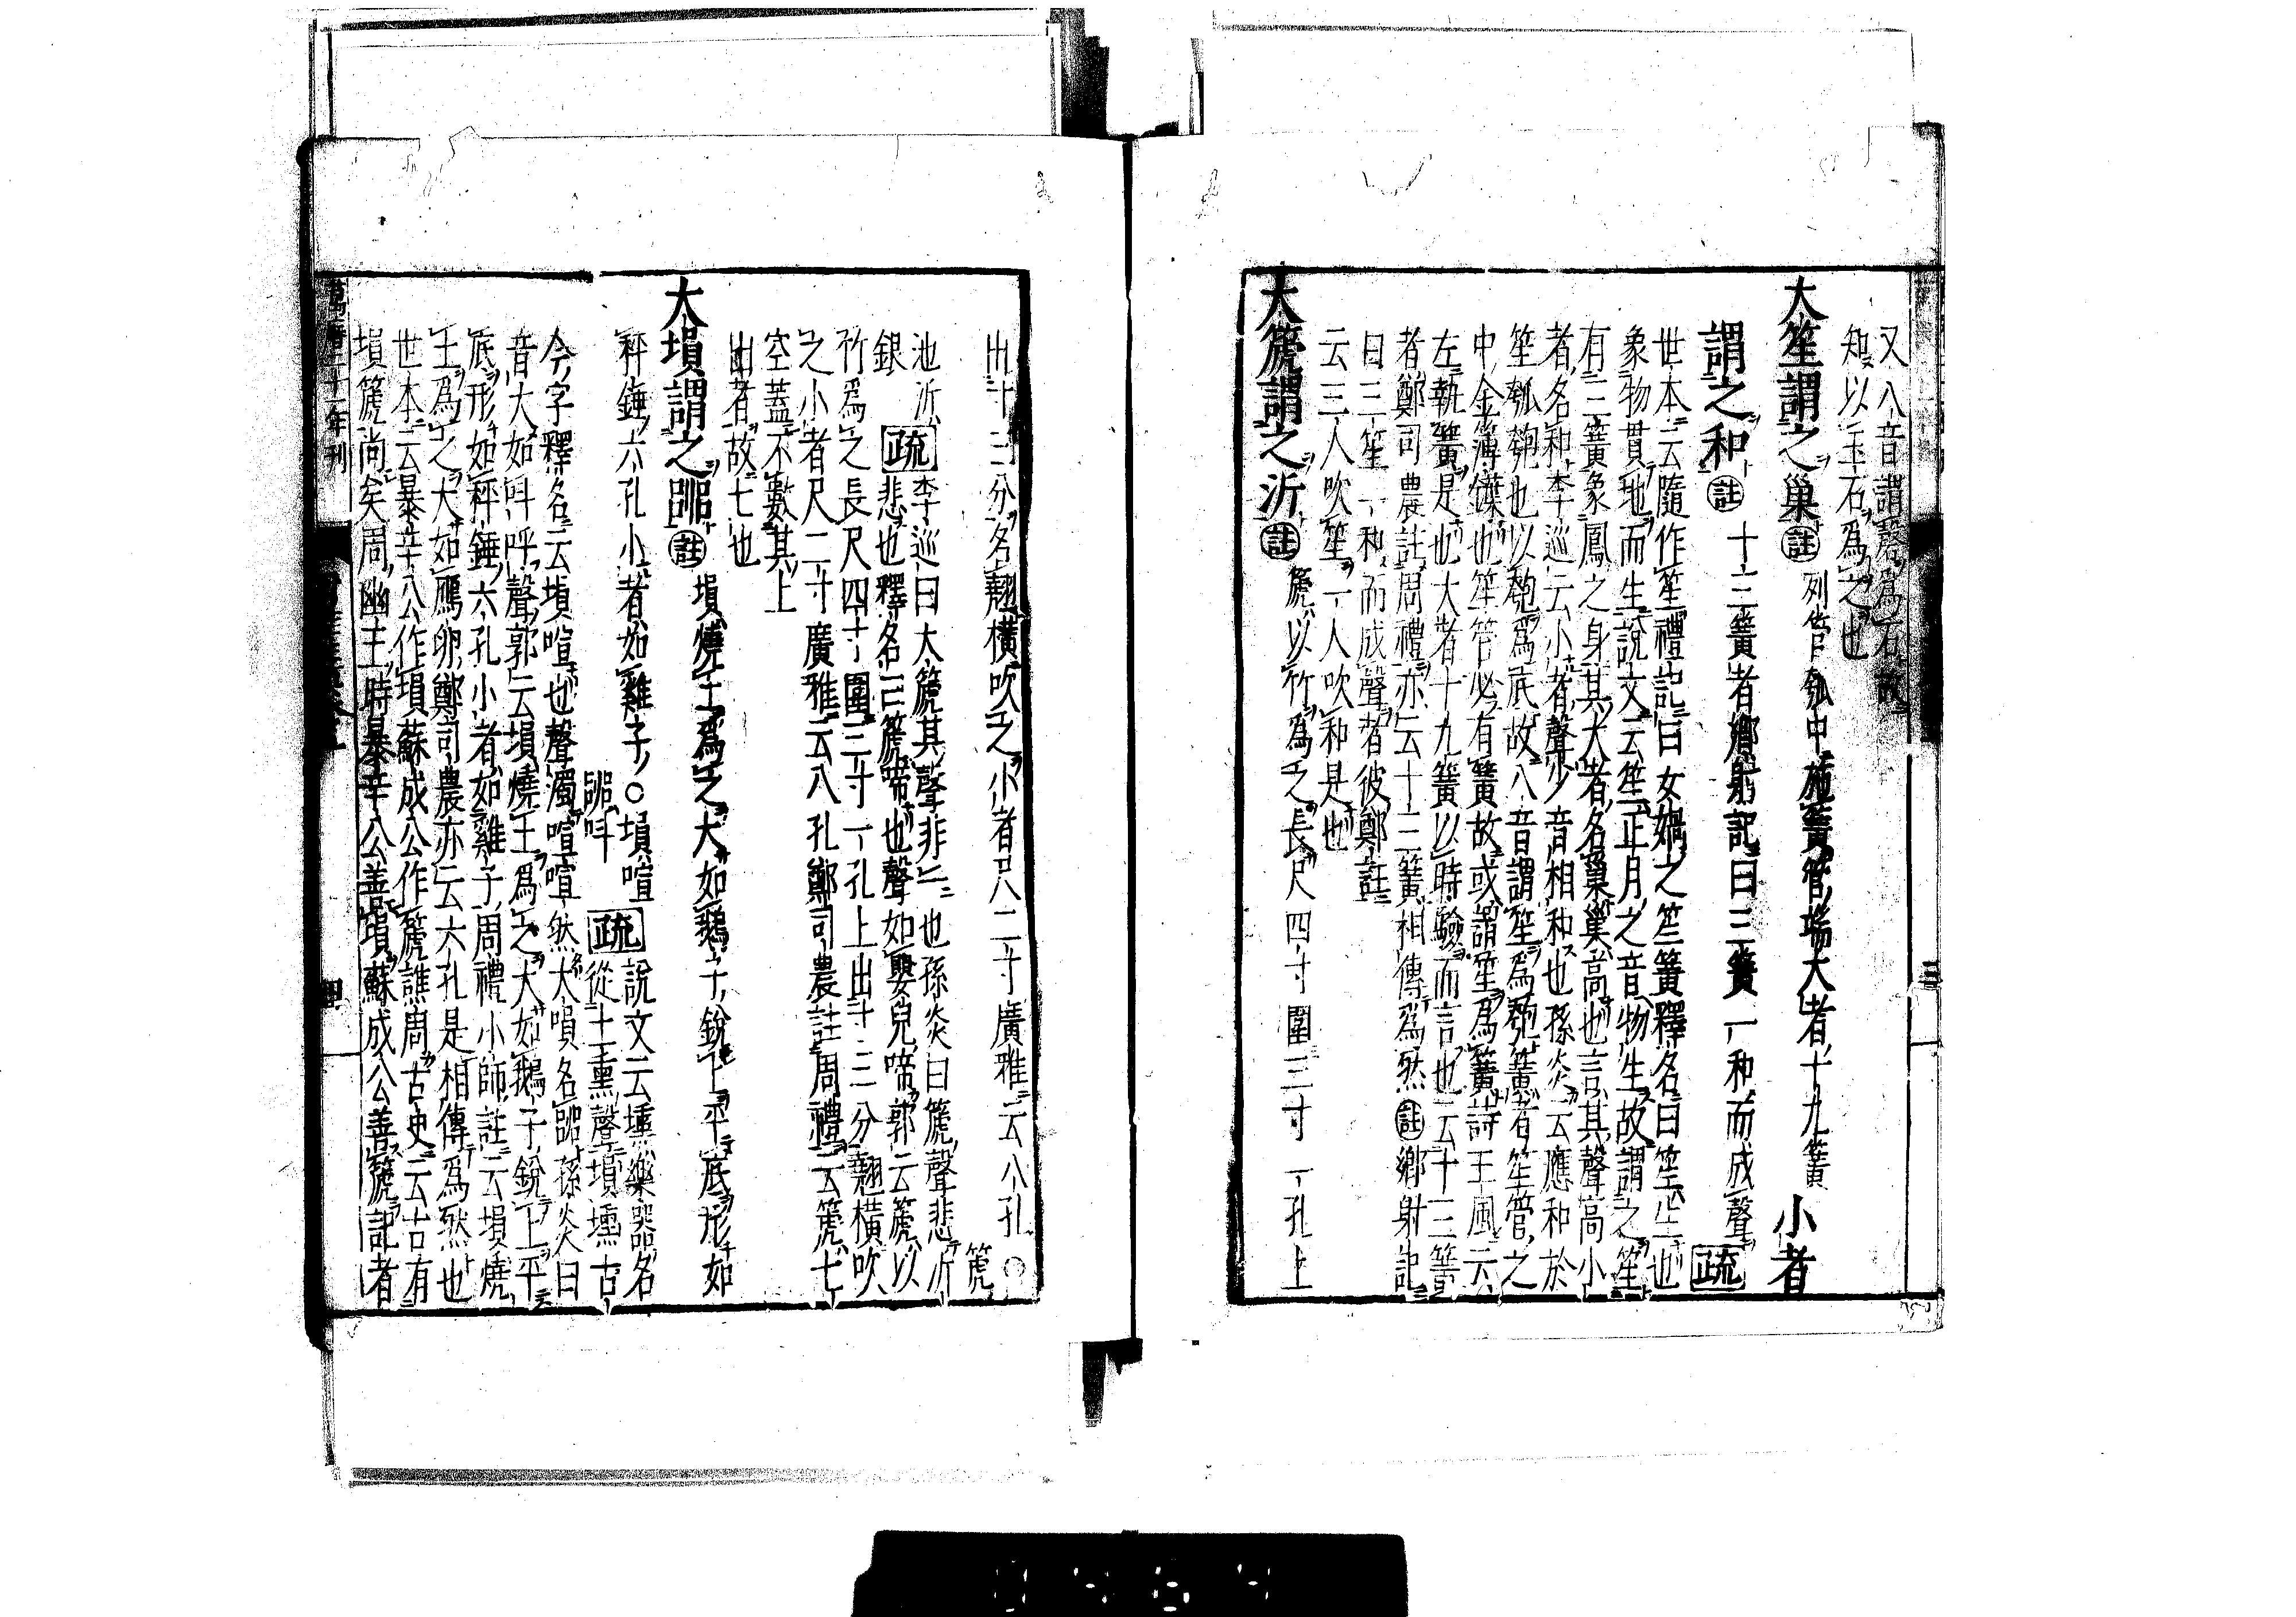 又八音謂磬爲石故
知以玉石爲之也
大笙謂之巢註列管匏中施簧管端大者十九簧小者
謂之和註十三簧者鄉射記曰三簧一和而成聲疏
世本云隨作笙禮記曰女媧之笙簧釋名曰笙生也
象物貫地而生說文云笙正月之音物生故謂之笙
有三簧象鳳之身其大者名巢巢高也言其聲高小
者名和李巡云小者聲少音相和也孫炎云應和於
笙瓠匏也以匏爲底故八音謂笙爲匏簧者笙管之
中金薄鐷也笙管必有簧故或謂笙爲簧詩王風云
左執簧是也大者十九簧以時驗而言也云十三簧
者鄭司農註周禮亦云十三簧相傳爲然註鄉射記
曰三笙一和而成聲者彼鄭註
云三人吹笙一人吹和是也
大篪謂之沂註篪以竹爲之長尺四寸圍三寸一孔上
出寸三分名翹橫吹之小者尺二寸廣雅云八孔○篪
池沂
銀疏李巡曰大篪其聲非一也孫炎曰篪聲悲沂
悲也釋名曰篪啼也聲如嬰兒啼郭云篪以
竹爲之長尺四寸圍三寸一孔上出寸三分翹橫吹
之小者尺二寸廣雅云八孔鄭司農註周禮云篪七
空蓋不數其上
出者故七也
大塤謂之嘂註塤燒土爲之大如鵝子銳上平底形如
秤錘六孔小者如雞子○塤喧
嘂叫疏說文云壎樂器名
從土熏聲塤壎古
今字釋名云塤喧也聲濁喧喧然大塤名嘂孫炎曰
音大如叫呼聲郭云塤燒土爲之大如鵝子銳上平
底形如秤錘六孔小者如雞子周禮小師註云塤燒
土爲之大如鴈卵鄭司農亦云六孔是相傳爲然也
世本云暴辛公作塤蘇成公作篪譙周古史云古有
塤篪尚矣周幽王時暴辛公善塤蘇成公善篪記者